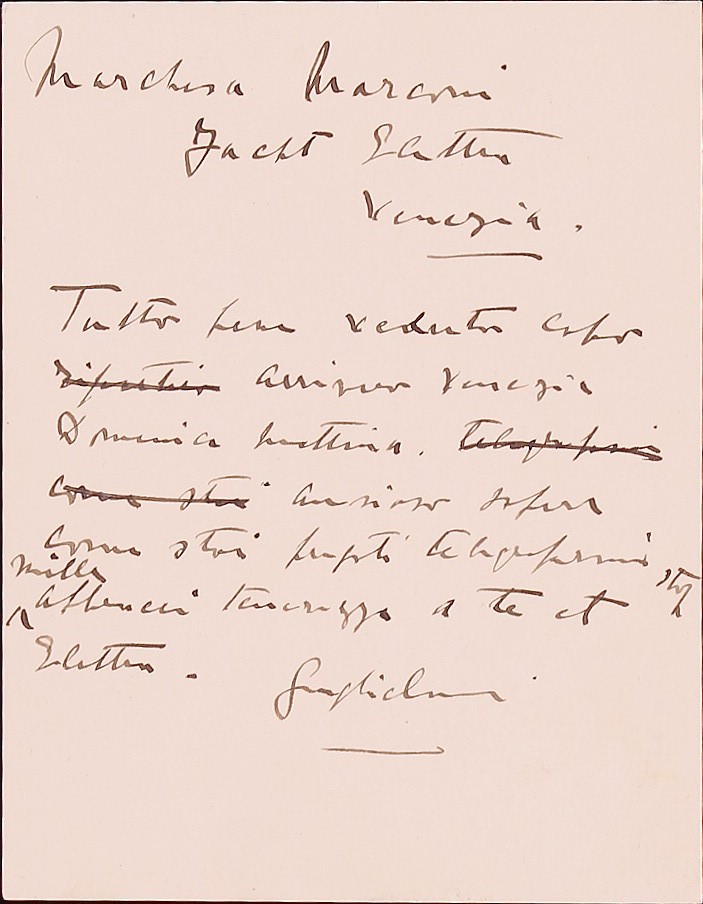 Marchesa Marconi
Yacht Elettra
Venezia.
Tutto bene veduto Capo
arriverò Venezia
Domenica mattina. telegrafami
come stai ansioso sapere
come stai pregoti telegrafarmi stop
mille
abbracci tenerezze a te et
Elettra.
Guglielmo